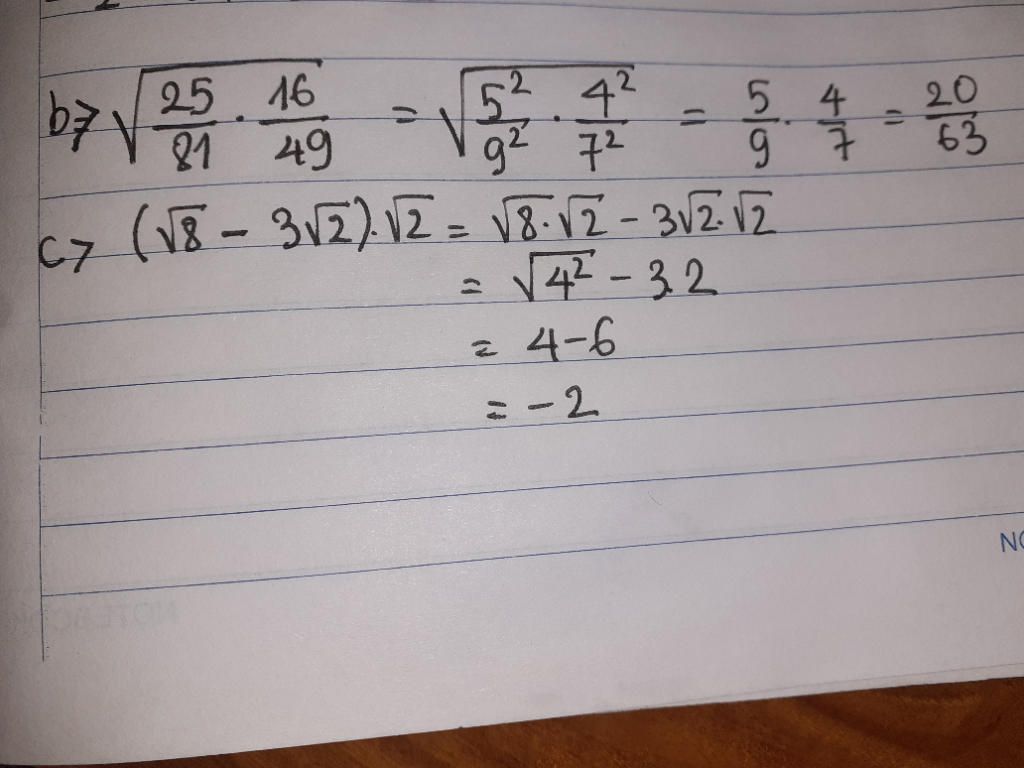 b> √(25/81 · 16/49) = √(5²/9² · 4²/7²) = 5/9 · 4/7 = 20/63
c> (√8 - 3√2).√2 = √8.√2 - 3√2.√2
= √4² - 3.2
= 4-6
= -2